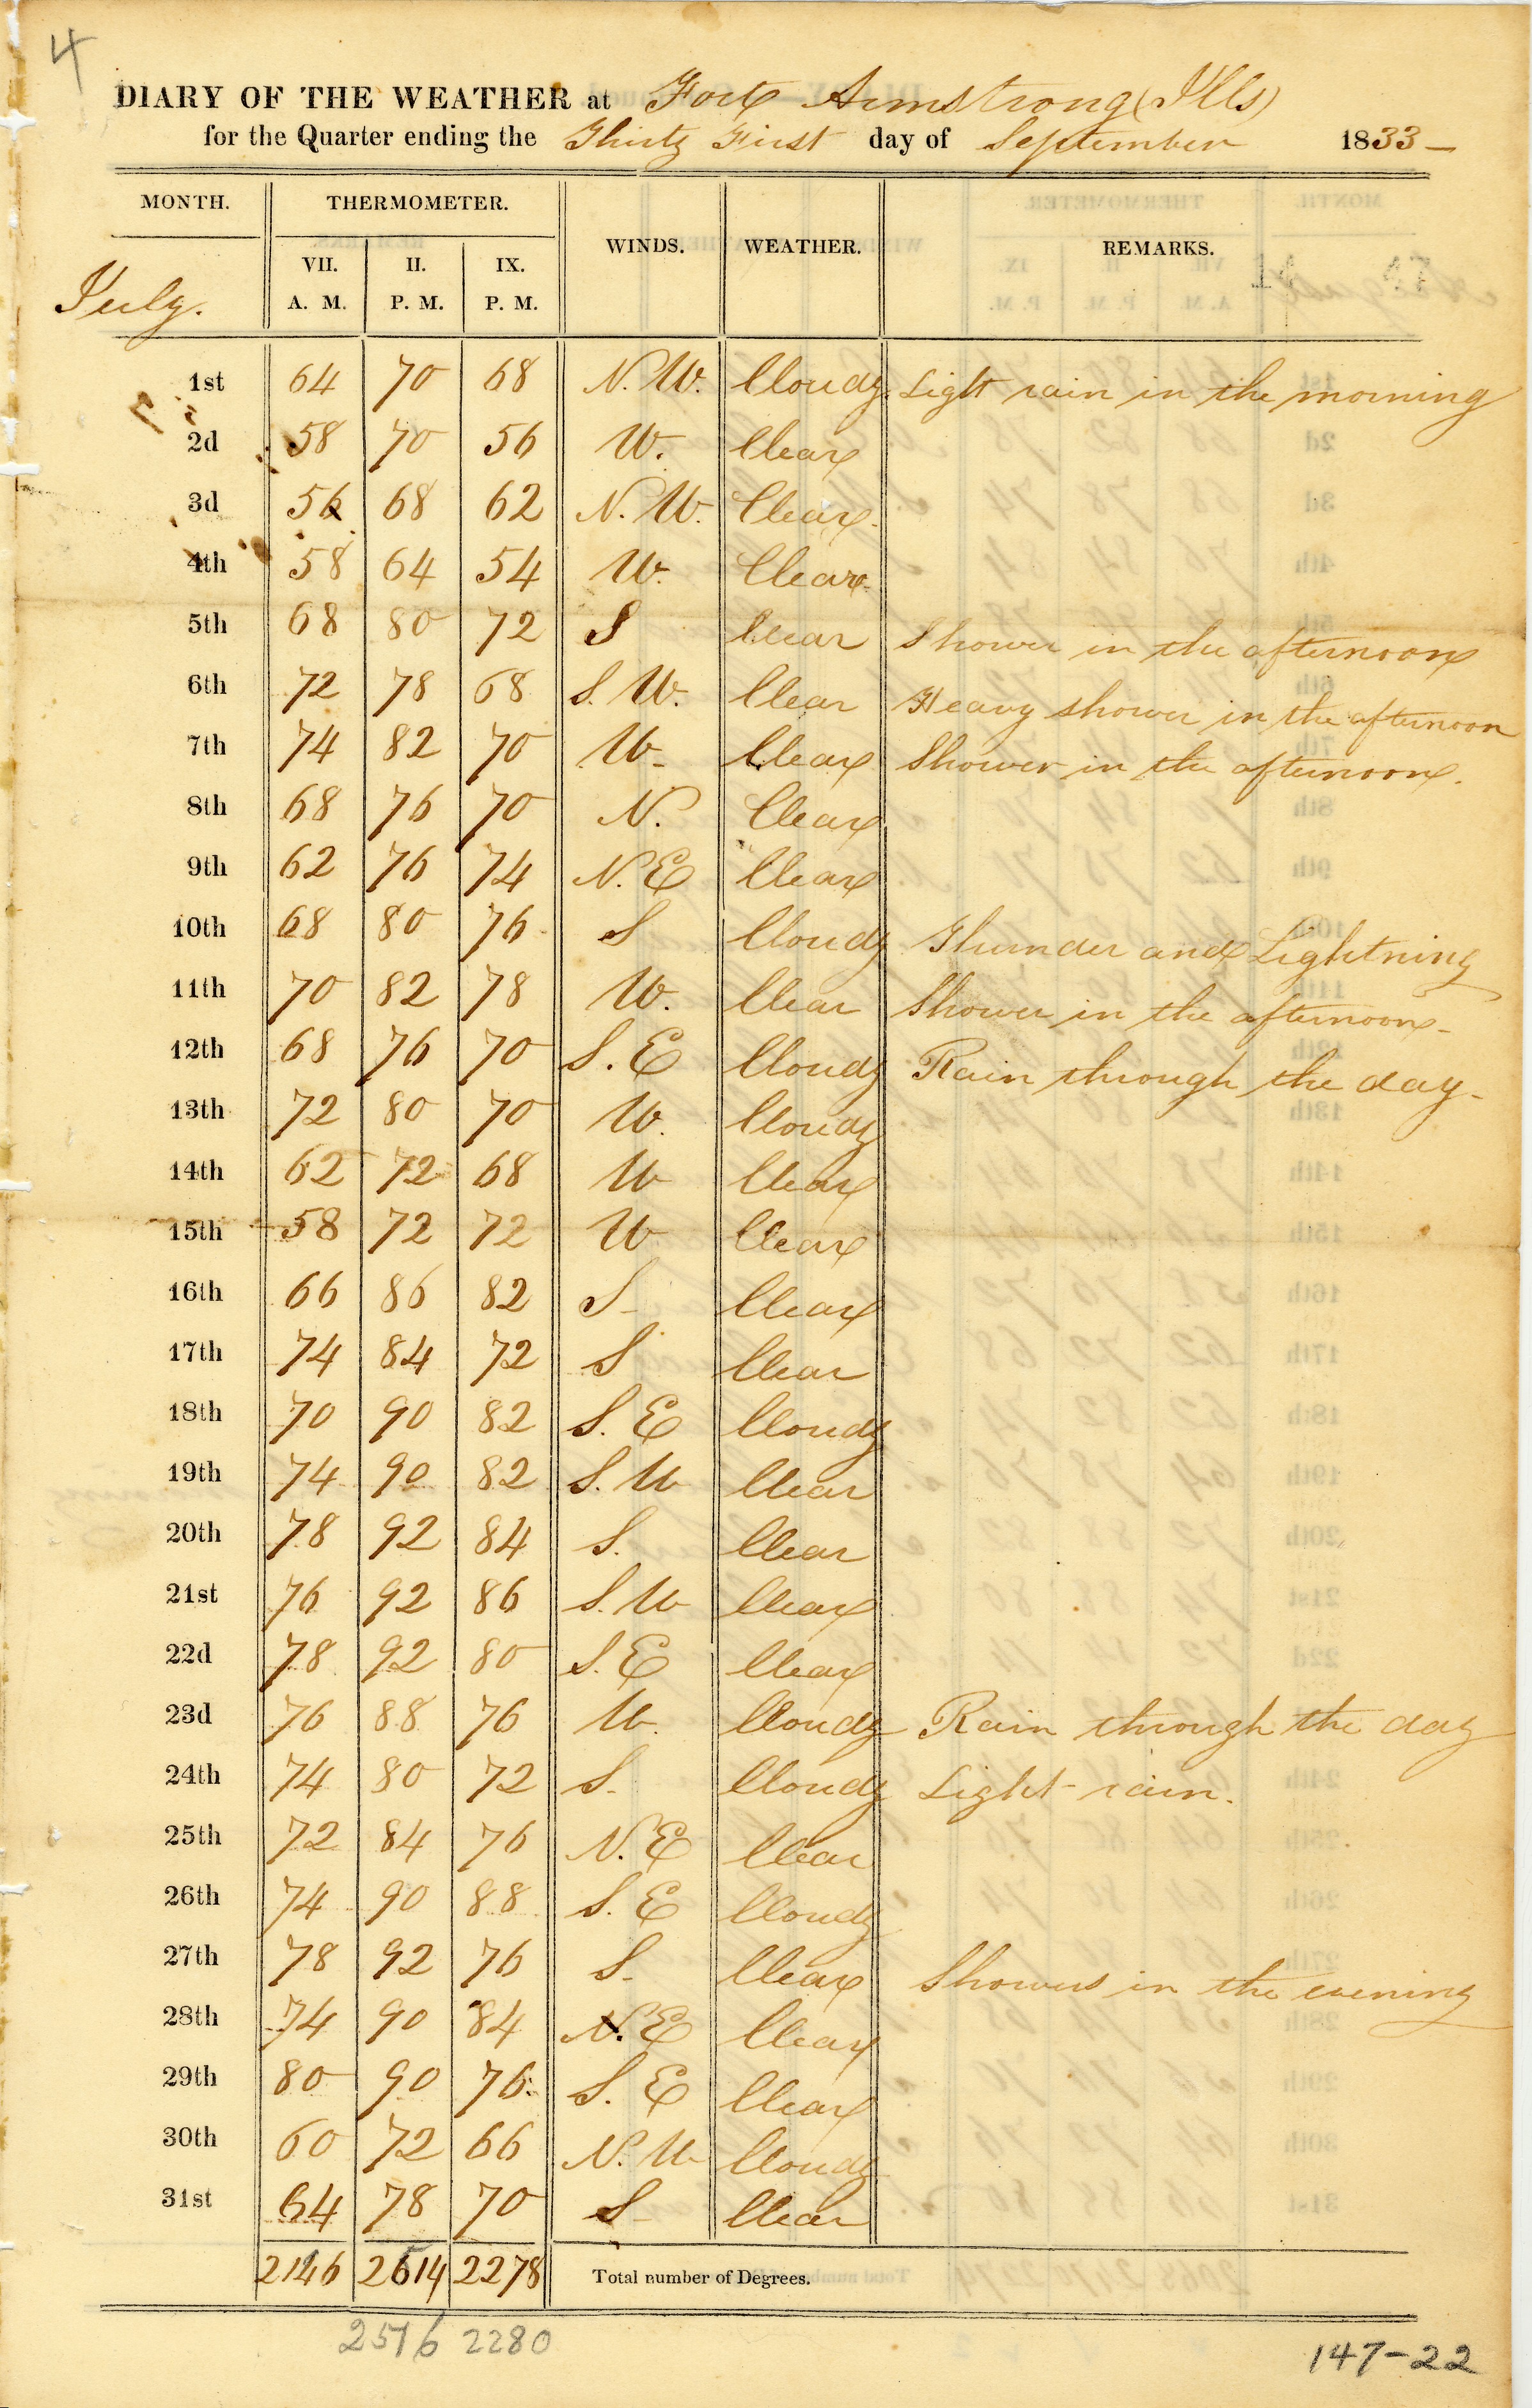 4
DIARY OF THE WEATHER at Fort Armstrong (Ills)
for the Quarter ending the Thirty First day of September 1833 –
MONTH. THERMOMETER. WINDS. WEATHER. REMARKS.
VII. II. IX.
A. M. P. M. P. M.
July.
1st 64 70 68 N. W. Cloudy. Light rain in the morning
2d 58 70 56 W. Clear
3d 56 68 62 N. W. Clear.
4th 58 64 54 W. Clear
5th 68 80 72 S Clear Shower in the afternoon
6th 72 78 68 S. W. Clear Heavy shower in the afternoon
7th 74 82 70 W. Clear Shower in the afternoon.
8th 68 76 70 N. Clear
9th 62 76 74 N. E Clear
10th 68 80 76 S Cloudy Thunder and Lightning
11th 70 82 78 W. Clear Shower in the afternoon –
12th 68 76 70 S. E Cloudy Rain through the day –
13th 72 80 70 W. Cloudy
14th 62 72 68 W Clear
15th 58 72 72 W Clear
16th 66 86 82 S – Clear
17th 74 84 72 S Clear
18th 70 90 82 S. E Cloudy
19th 74 90 82 S. W Clear
20th 78 92 84 S. Clear
21st 76 92 86 S. W Clear
22d 78 92 80 S. E Clear
23d 76 88 76 W. Cloudy Rain through the day
24th 74 80 72 S. Cloudy Light rain.
25th 72 84 76 N. E Clear
26th 74 90 88 S. E Cloudy
27th 78 92 76 S – Clear Showers in the evening
28th 74 90 84 N. E Clear
29th 80 90 76 S. E Clear
30th 60 72 66 N. W Cloudy
31st 64 78 70 S – Clear
2146 2614 2278 Total number of Degrees.
2516 2280
147-22